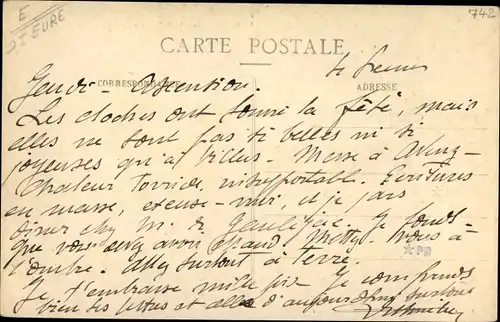 E
St EURE
742
CARTE POSTALE
CORRESPONDANCE
ADRESSE
Jeudi - Ascention.
Les cloches ont sonné la fête, mais
elles ne sont pas si belles ni si
joyeuses qu'à Villers - Messe à
Chaleur torride, insupportable. Ecritures
en masse, excuse-moi, et je pars
dîner chez M. de Je
que vous avez chaud Metty. Vous à
l'ombre. Allez surtout à terre.
Je t'embrasse mille fois Je comprends
bien tes lettres et celle d'aujourd'hui surtout
*PD